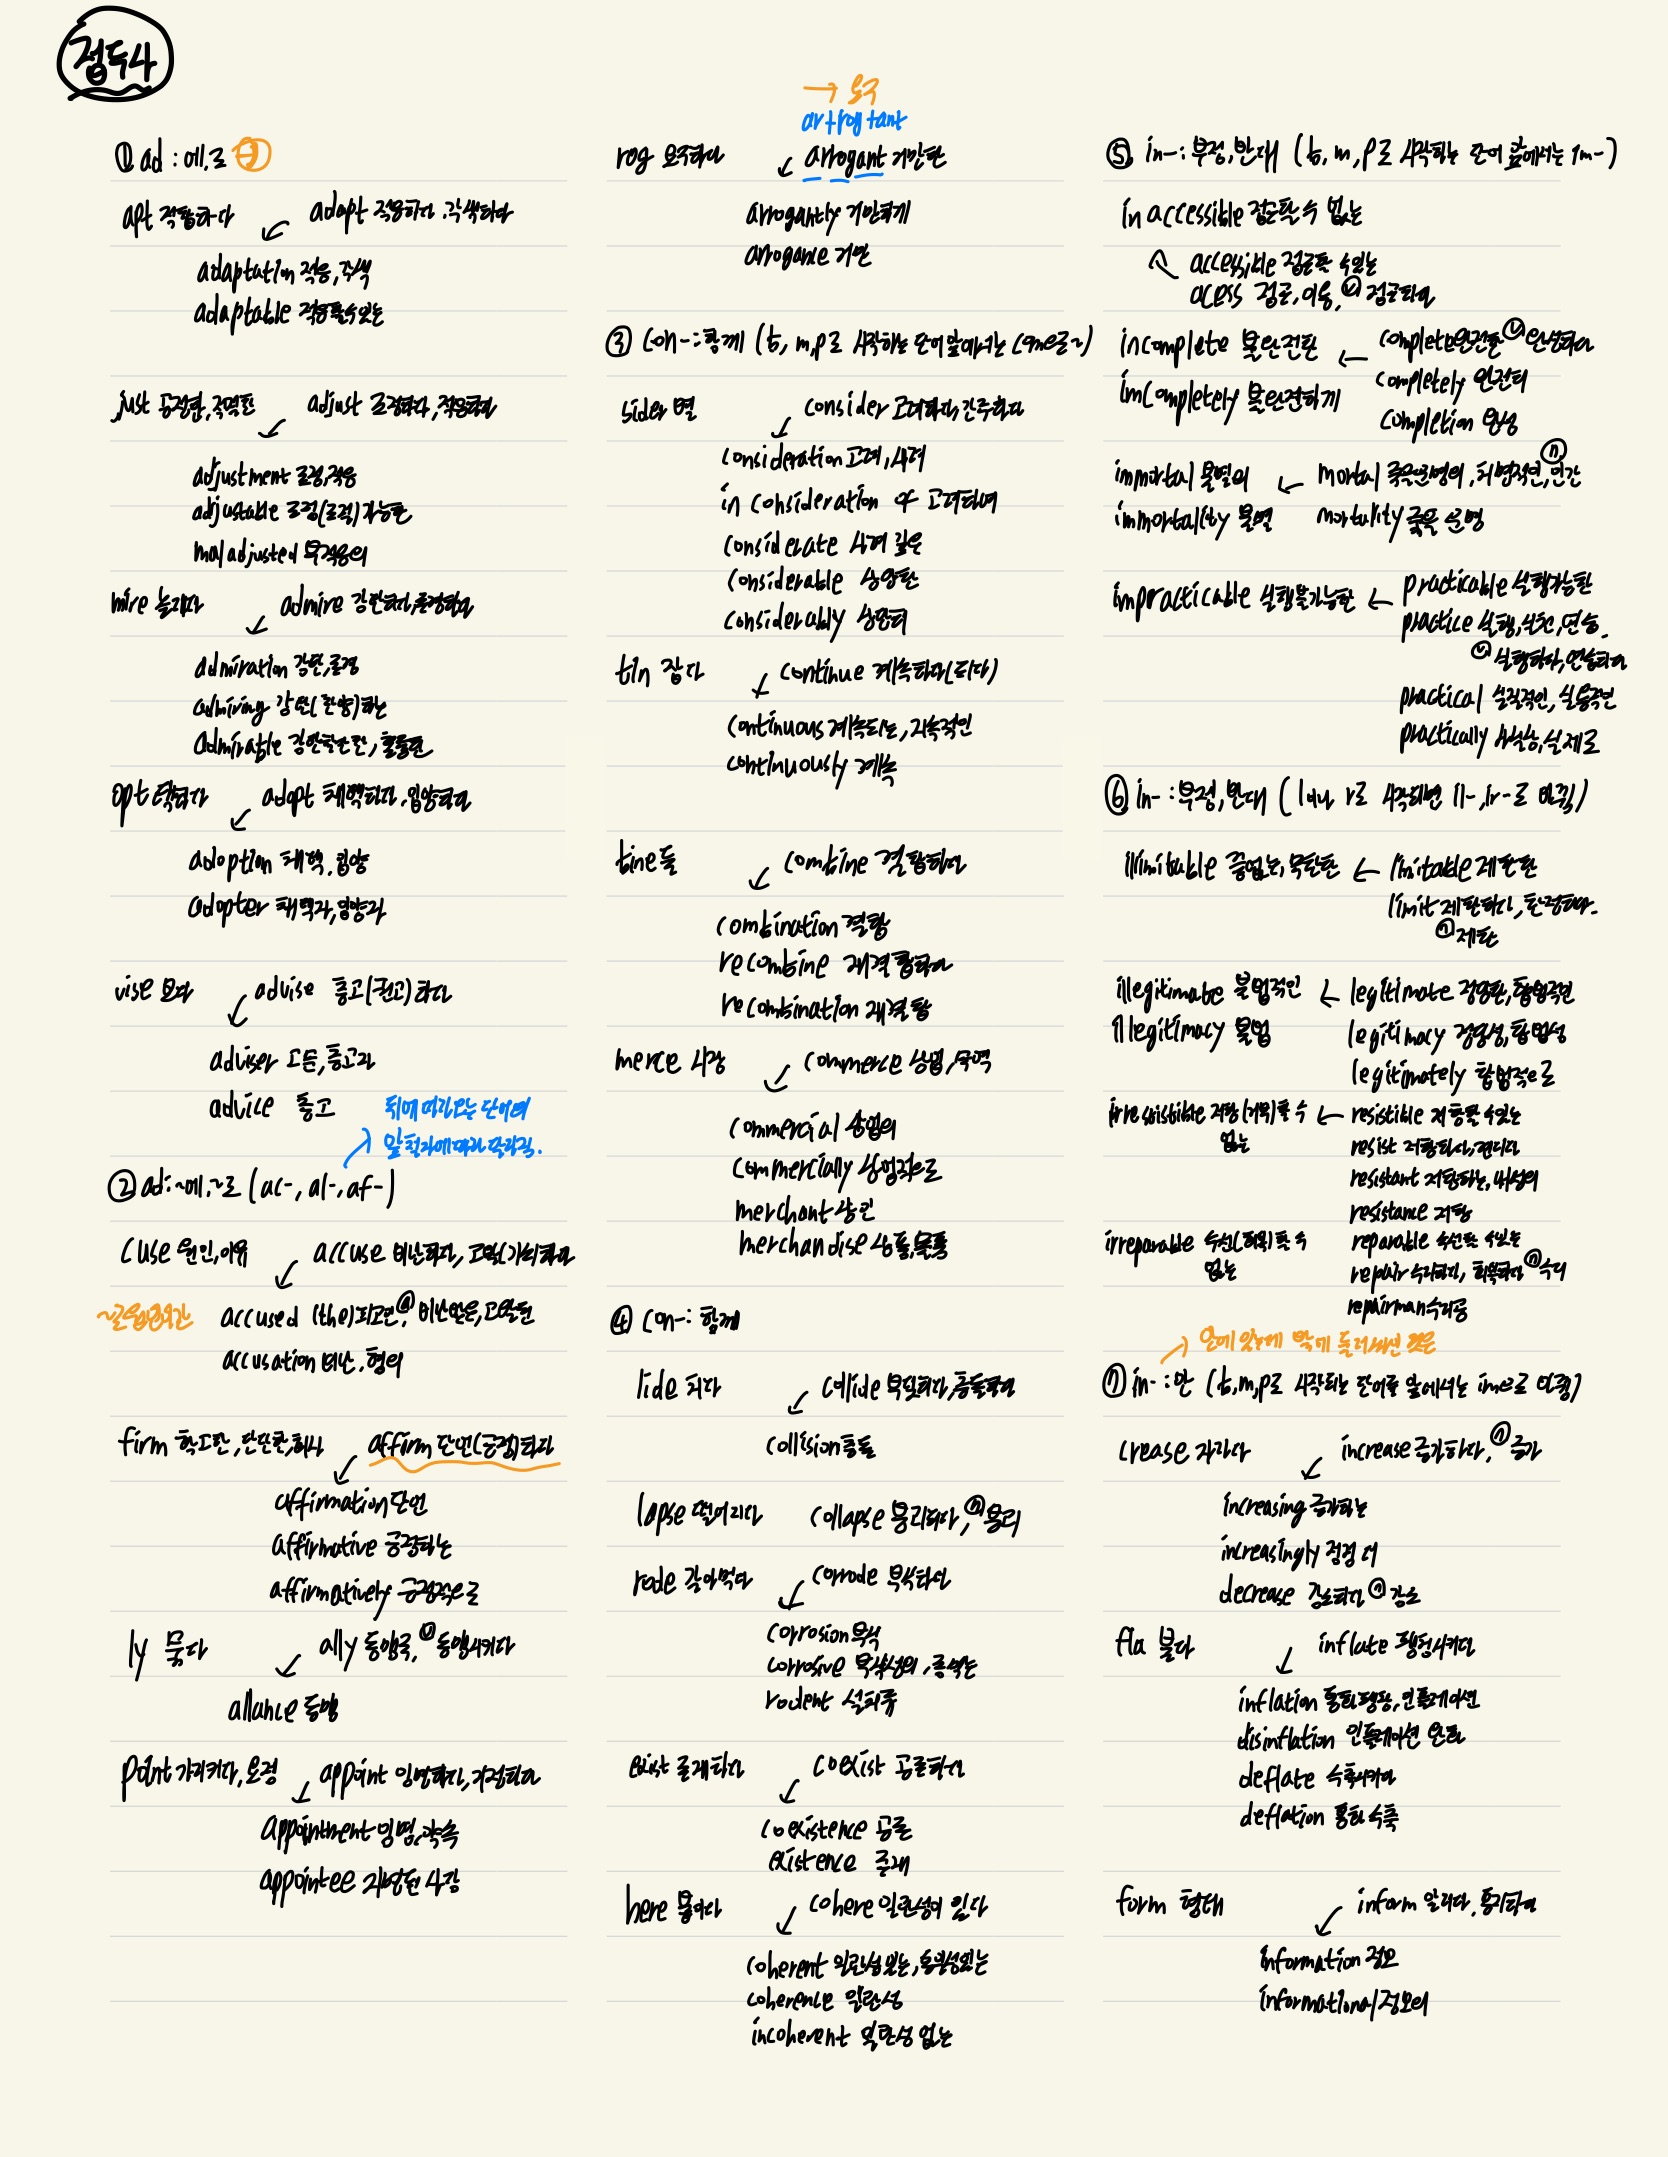 접두사
① ad : 에.로 →
apt 적합하다 ↙ adapt 적응하다, 각색하다
adaptation 적응, 각색
adaptable 적응할 수 있는
just 공정한, 정당한 ↙ adjust 조정하다, 적응하다
adjustment 조정, 적응
adjustable 조정(조절) 가능한
maladjusted 부적응의
mire 놀라다 ↙ admire 감탄하다, 존경하다
admiration 감탄, 존경
admiring 감탄(찬양)하는
admirable 감탄할만한, 훌륭한
opt 택하다 ↙ adopt 채택하다, 입양하다
adoption 채택, 입양
adopter 채택자, 입양자
vise 보다 ↙ advise 충고(권고)하다
adviser 고문, 충고자
advice 충고
뒤에 따라오는 단어의
앞 철자에 따라 달라짐.
② ad: ~에, ~로 (ac-, al-, af-)
cuse 원인, 이유 ↙ accuse 비난하다, 고발(기소)하다
accused (the)피고인, ⓐ 비난받은, 고발된
accusation 비난, 혐의
firm 확고한, 단단한, 회사 ↙ affirm 단언(긍정)하다
affirmation 단언
affirmative 긍정하는
affirmatively 긍정적으로
ly 묶다 ↙ ally 동맹국, ⓥ 동맹시키다
allance 동맹
point 가리키다, 요점 ↙ appoint 임명하다, 지정하다
appointment 임명, 약속
appointee 지명된 사람
→ 요구
ar+rog+ant
rog 요구하다 ↙ arrogant 거만한
arrogantly 거만하게
arrogance 거만
③ con-: 함께 (b, m, p로 시작하는 단어 앞에서는 com으로)
sider 별 ↙ consider 고려하다, 간주하다
consideration 고려, 사려
in consideration of 고려하여
considerate 사려 깊은
considerable 상당한
considerably 상당히
tin 잡다 ↙ continue 계속하다(되다)
continuous 계속되는, 지속적인
continuously 계속
bine 둘 ↙ combine 결합하다
combination 결합
recombine 재결합하다
recombination 재결합
merce 시장 ↙ commerce 상업, 무역
commercial 상업의
commercially 상업적으로
merchant 상인
merchandise 상품, 물품
④ con-: 함께
lide 치다 ↙ collide 부딪히다, 충돌하다
collision 충돌
lapse 떨어지다 collapse 붕괴되다, ⓝ 붕괴
rode 갉아먹다 ↙ corrode 부식하다
corrosion 부식
corrosive 부식성의, 좀먹는
rodent 설치류
exist 존재하다 ↙ coexist 공존하다
coexistence 공존
existence 존재
here 붙이다 ↙ cohere 일관성이 있다
coherent 일관성 있는, 통일성있는
coherence 일관성
incoherent 일관성 없는
⑤ in-: 부정, 반대 (b, m, p로 시작하는 단어 앞에서는 im-)
inaccessible 접근할 수 없는
accessible 접근할 수있는
acess 접근, 이용, ⓥ 접근하다
incomplete 불완전한 ← complete완전한 ⓥ 완성하다
imcompletely 불완전하게 completely 완전히
completion 완성
immortal 불멸의 ← mortal 죽을운명의, 치명적인, ⓝ 인간
immortality 불멸 mortality 죽을 운명
impracticable 실행불가능한 ← practicable 실행가능한
practice 실행, 실천, 연습.
ⓥ 실행하다, 연습하다
practical 실질적인, 실용적인
practically 사실상, 실제로
⑥ in-: 부정, 반대 (l이나 r로 시작되면 il-, ir-로 바뀜)
illimitable 끝없는, 무한한 ← limitable 제한한
limit 제한하다, 한정하다.
ⓝ 제한
illegitimate 불법적인 ← legitimate 정당한, 합법적인
illegitimacy 불법 legitimacy 정당성, 합법성
legitimately 합법적으로
irresistible 저항(거부)할 수 없는 ← resistible 저항할 수있는
resist 저항하다, 견디다
resistant 저항하는, 내성의
resistance 저항
irreparable 수선(회복)할 수 없는 reparable 수선할 수있는
repair 수리하다, 회복하다 ⓝ 수리
repairman 수리공
⑦ in-: 안 (b, m, p로 시작되는 단어들 앞에서는 im으로 바뀜)
crease 자라다 ↙ increase 증가하다, ⓝ 증가
increasing 증가하는
increasingly 점점 더
decrease 감소하다 ⓝ 감소
fla 불다 ↙ inflate 팽창시키다
inflation 통화팽창, 인플레이션
disinflation 인플레이션 완화
deflate 수축시키다
deflation 통화 수축
form 형태 ↙ inform 알리다, 통지하다
information 정보
informational 정보의